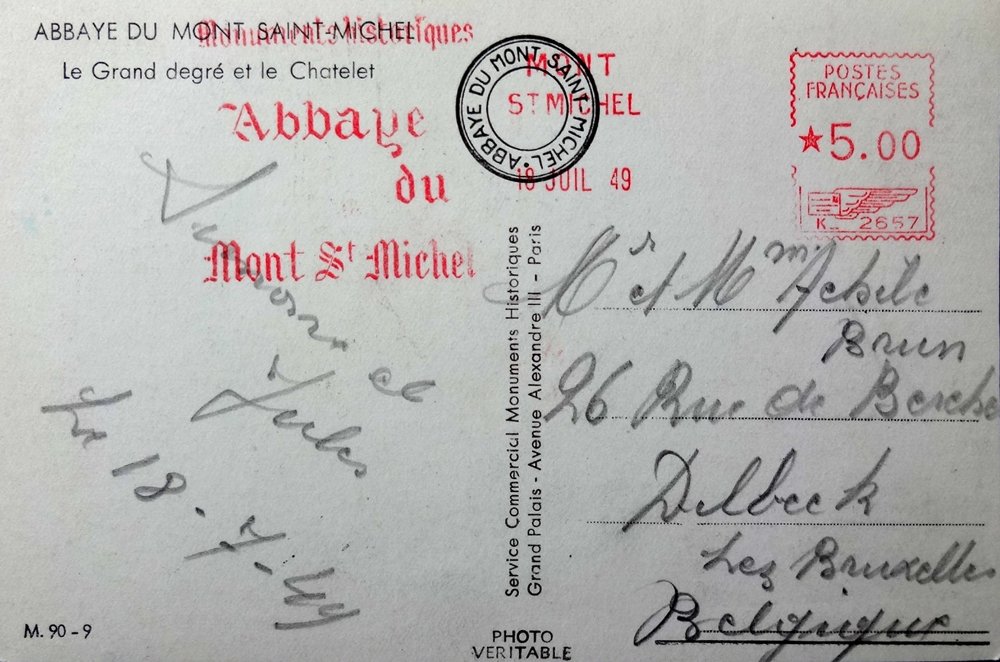 ABBAYE DU MONT SAINT-MICHEL
Le Grand degré et le Chatelet
Monuments historiques
Abbaye
du
Mont St Michel
ABBAYE DU MONT SAINT MICHEL
MONT
ST MICHEL
18 JUIL 49
POSTES
FRANÇAISES
★5.00
K 2657
et
Jules
Le 18-7-49
M. 90-9
Service Commercial Monuments Historiques
Grand Palais - Avenue Alexandre III - Paris
PHOTO
VERITABLE
Mr et Mme Achile
Brun
26 Rue de
Dilbeek
Lez Bruxelles
Belgique